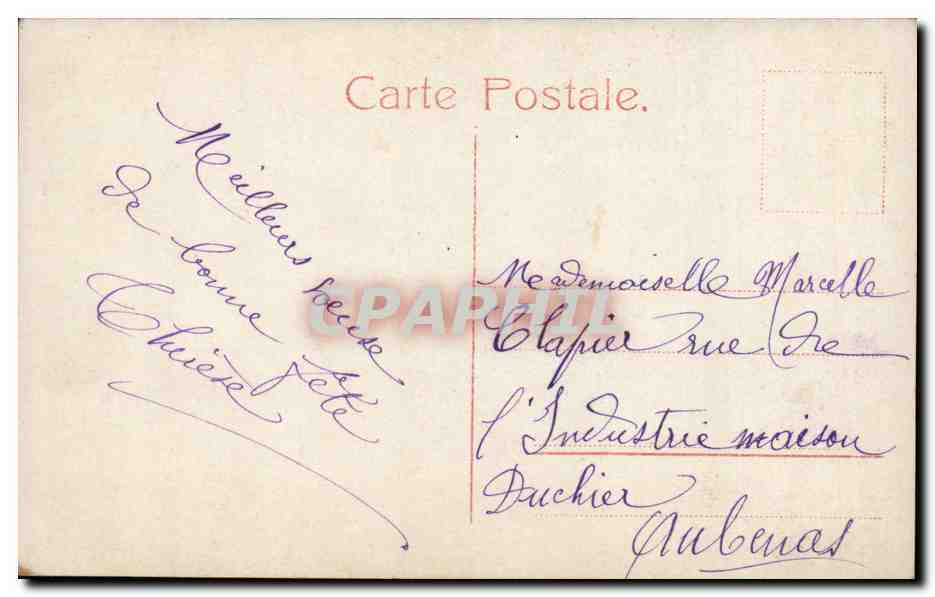 Carte Postale.
Meilleurs
de bonne fête
Thérèse
Mademoiselle Marcelle
Clapier rue de
l'Industrie maison
Duchier
Aubenas
CPAPHIL